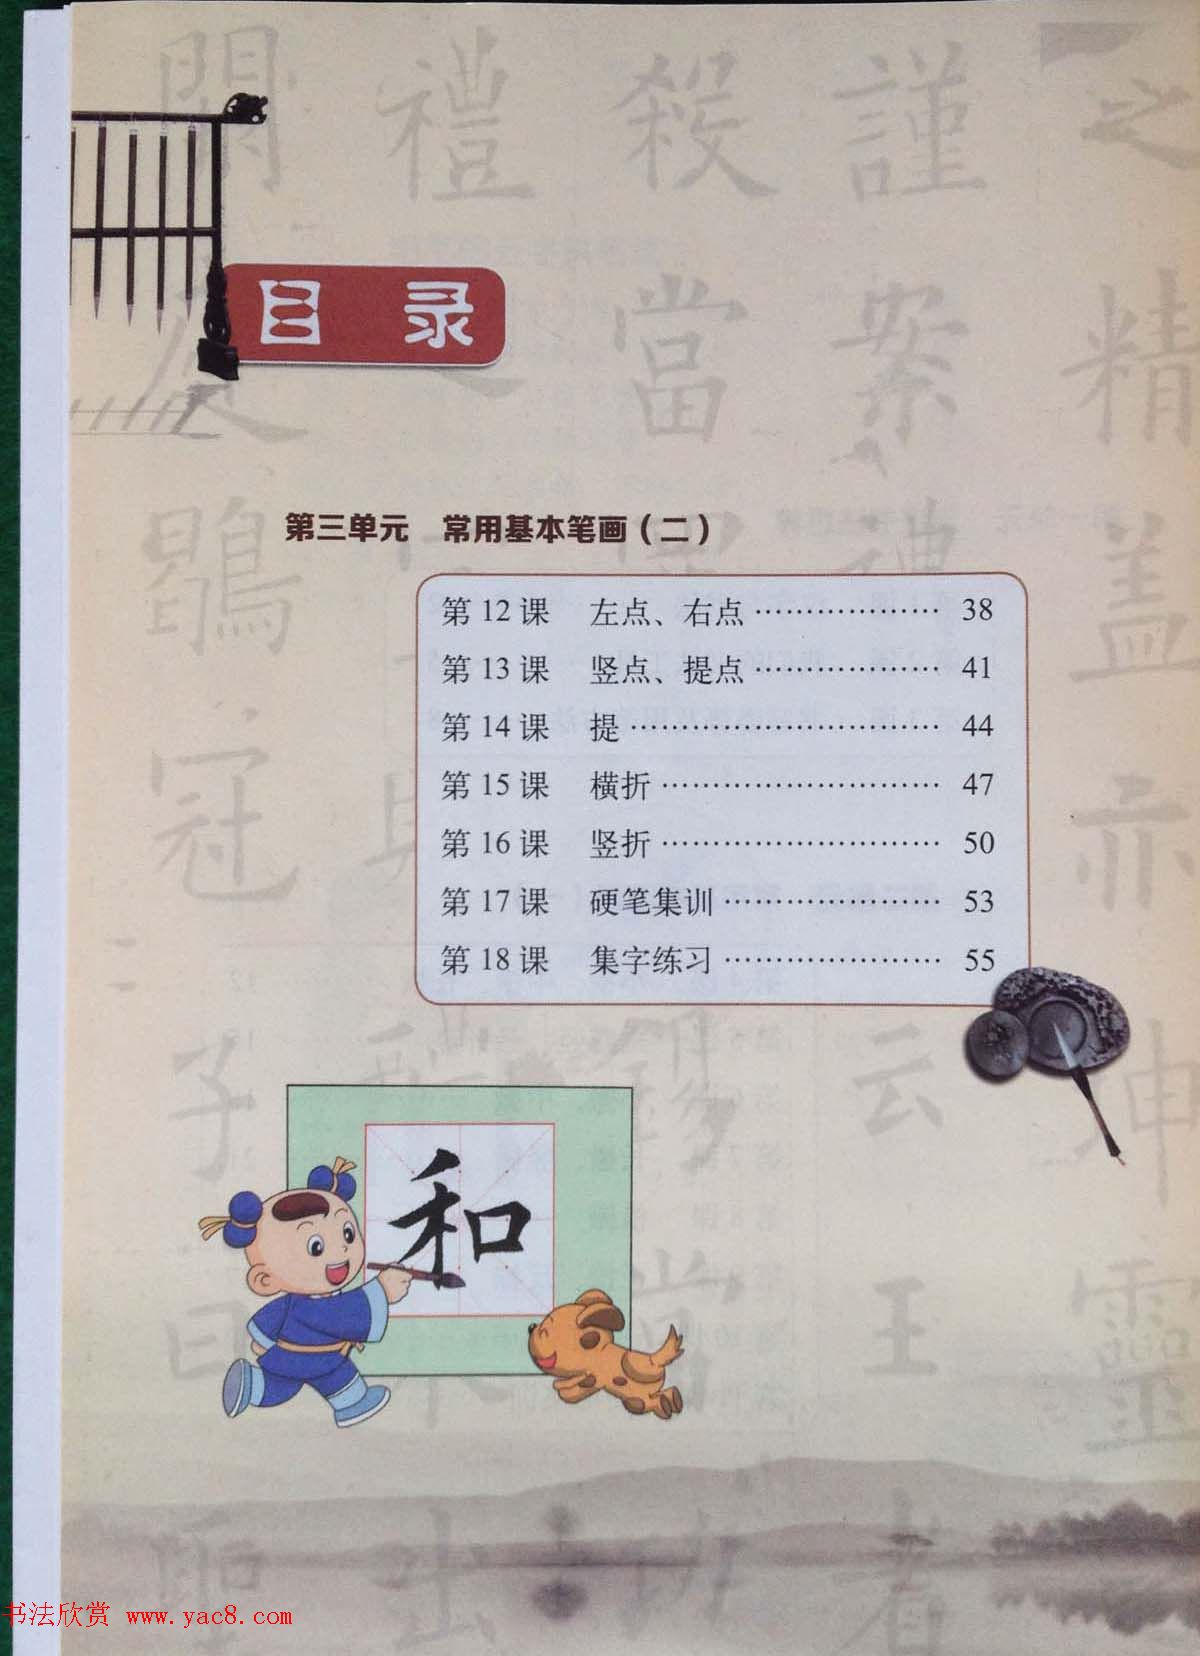 目 录
第三单元 常用基本笔画（二）
第 12 课 左点、右点 ……………… 38
第 13 课 竖点、提点 ……………… 41
第 14 课 提 ………………………… 44
第 15 课 横折 ……………………… 47
第 16 课 竖折 ……………………… 50
第 17 课 硬笔集训 ………………… 53
第 18 课 集字练习 ………………… 55
和
书法欣赏 www.yac8.com